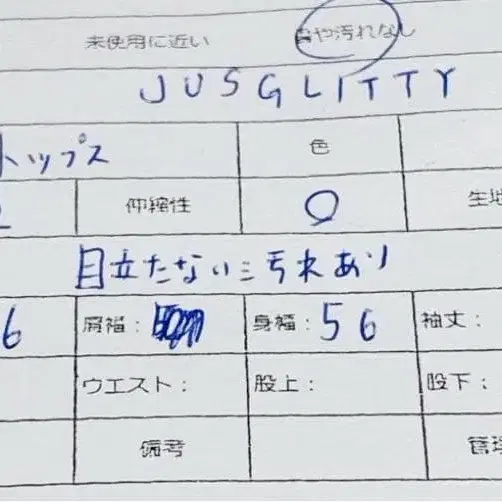 未使用に近い や汚れなし
JUSGLITTY
トップス 色
伸縮性 ○ 生地
目立たない汚れあり
6 肩幅： 身幅：56 袖丈：
ウエスト： 股上： 股下：
備考 管理